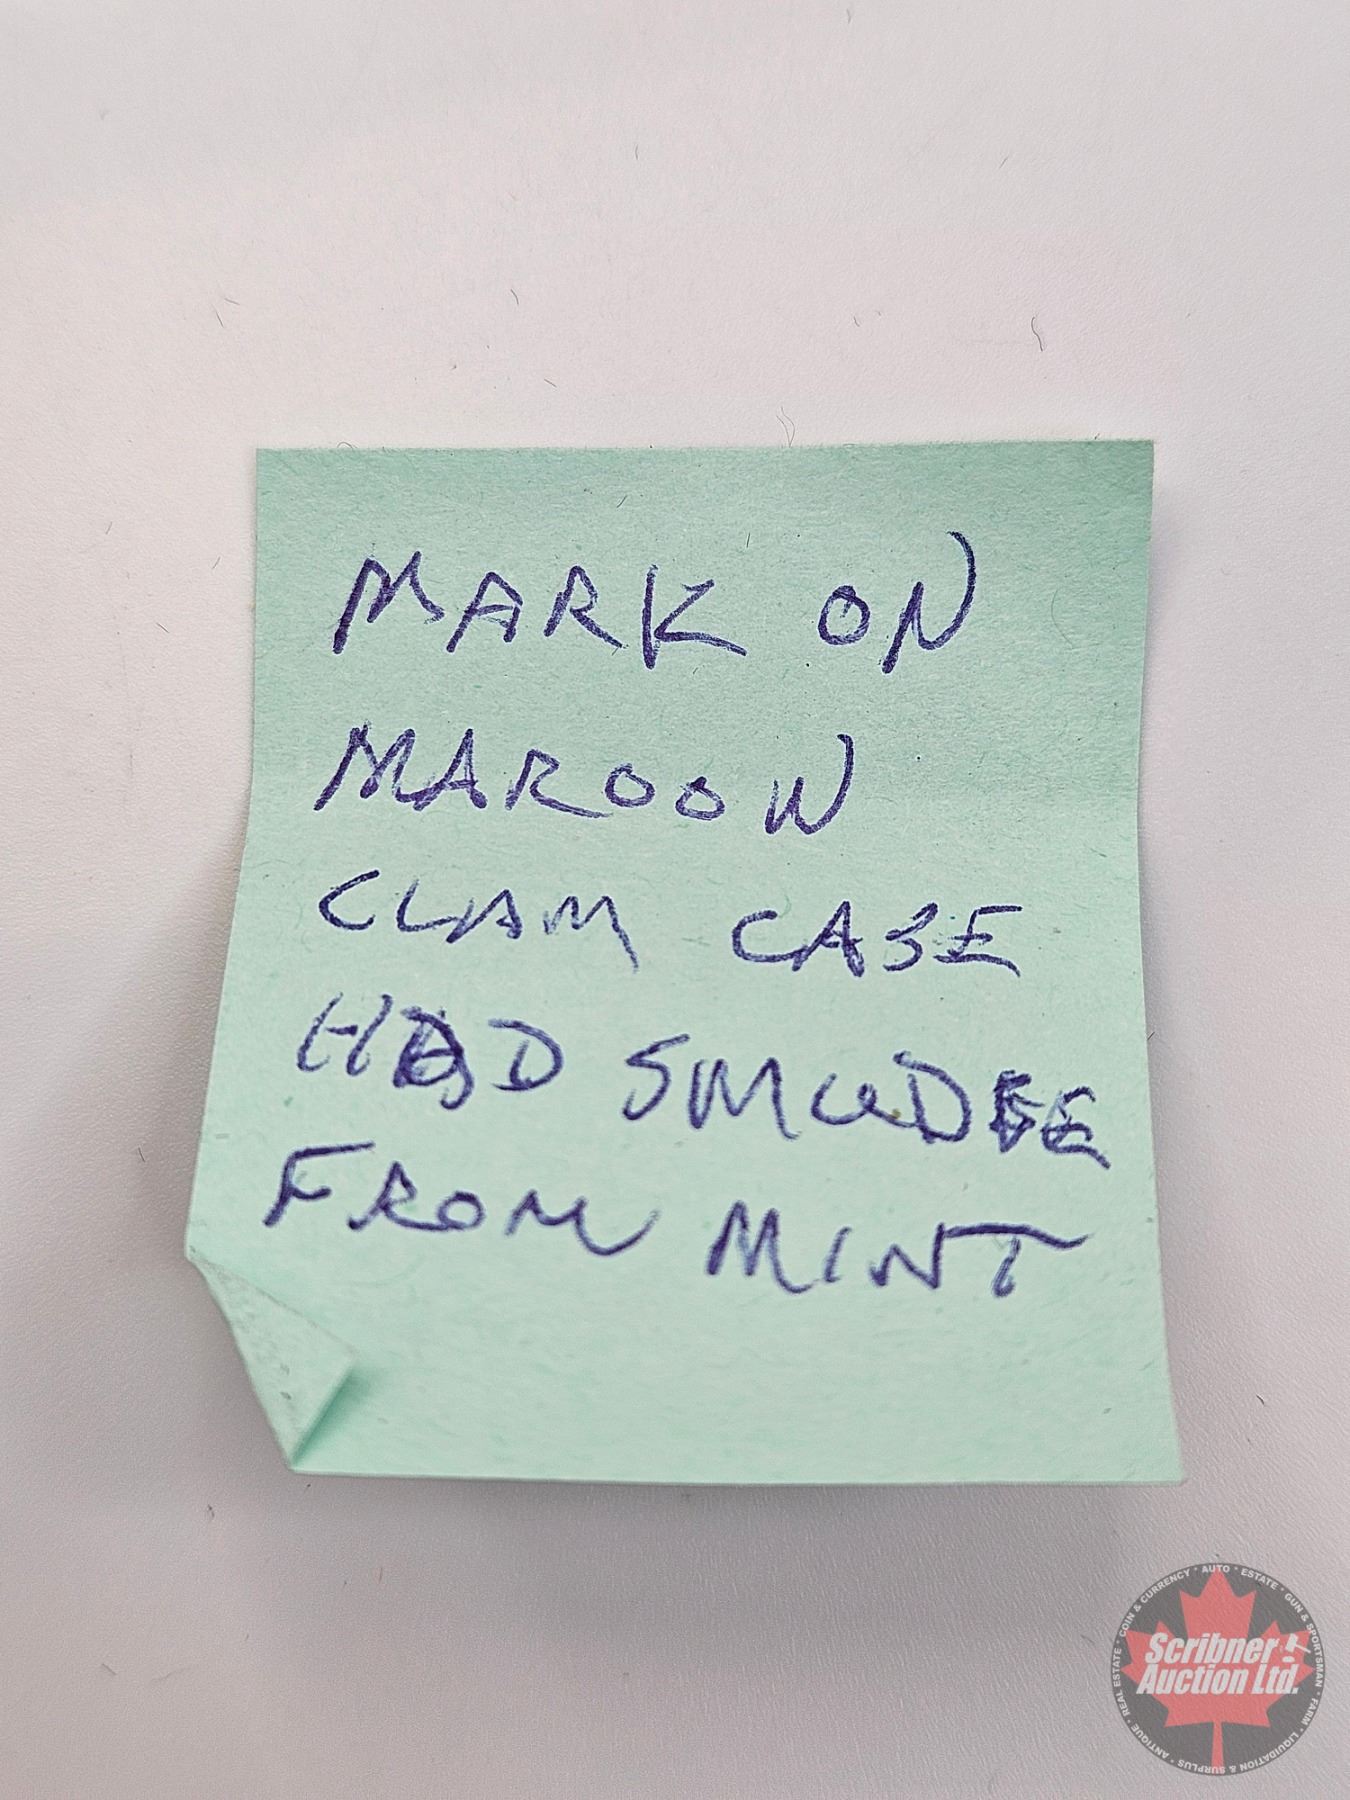 MARK ON
MAROON
CLAM CASE
HAD SMUDGE
FROM MINT
COIN & CURRENCY • AUTO • ESTATE • GUN & SPORTSMAN • FARM • LIQUIDATION & SURPLUS • ANTIQUE • REAL ESTATE •
Scribner
Auction Ltd.